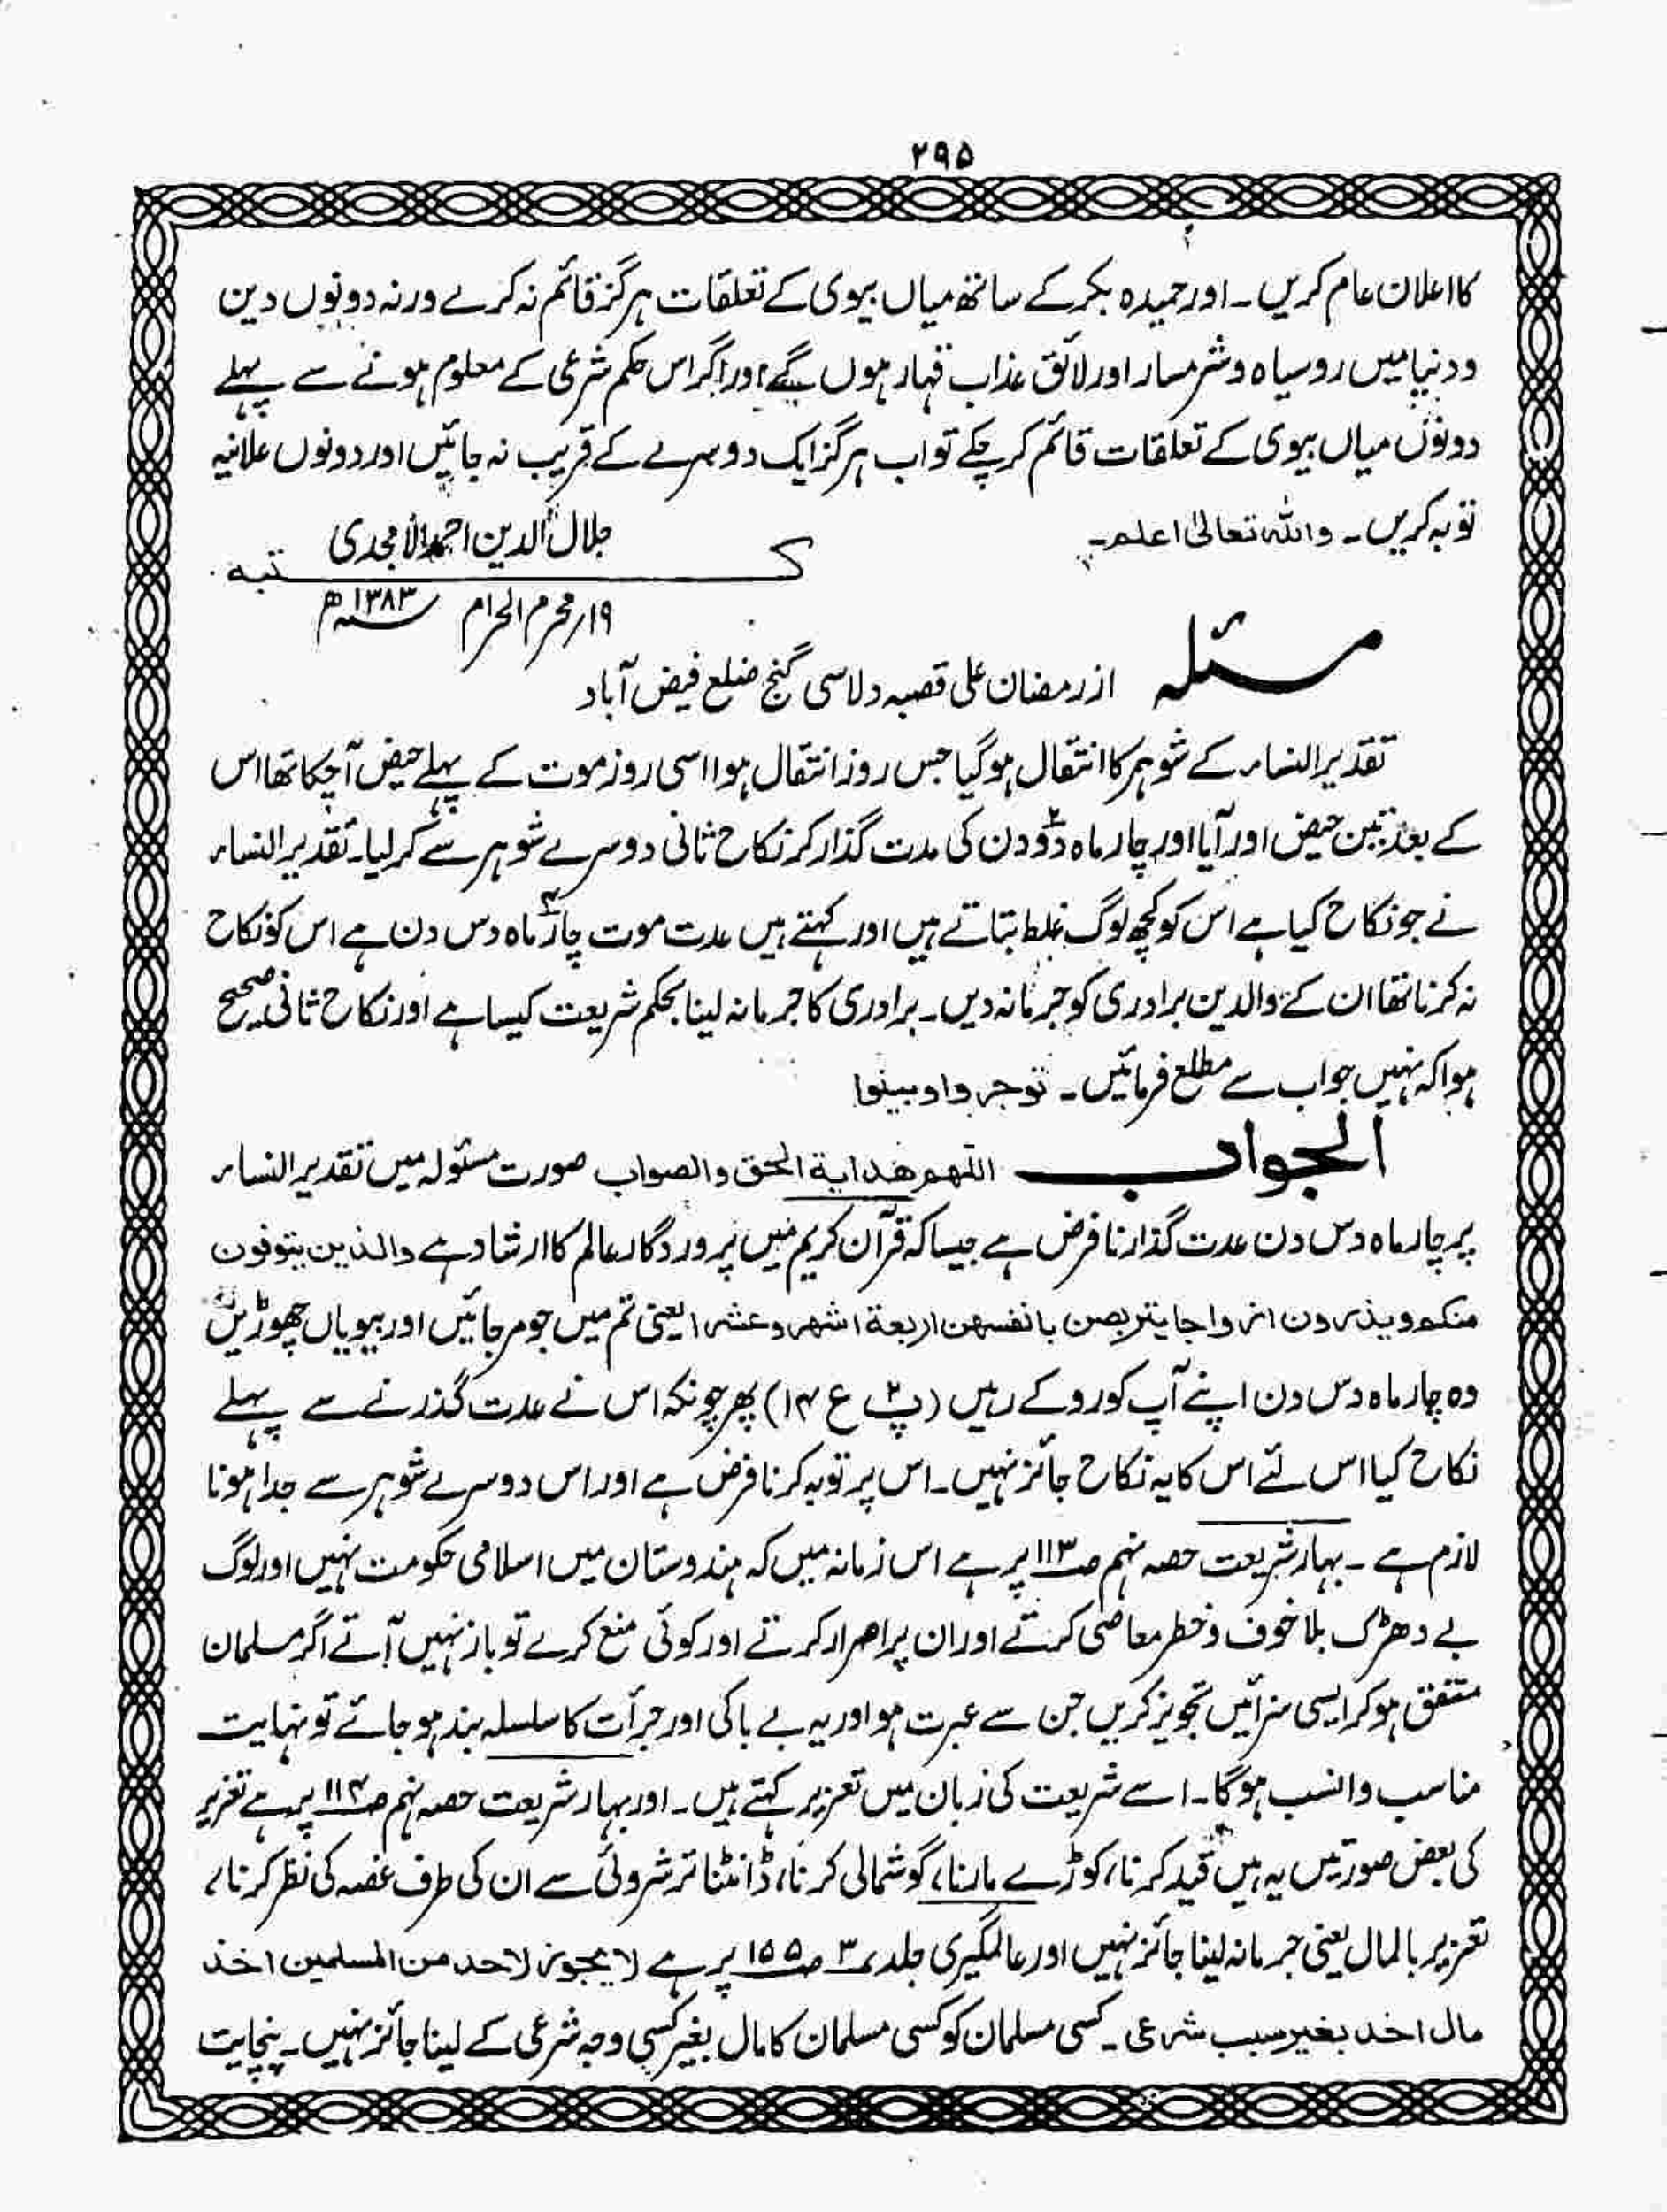 ۲۹۵
کا اعلان عام کریں ۔ اور حمیدہ بکر کے ساتھ میاں بیوی کے تعلقات ہرگز قائم نہ کرے ورنہ دونوں دین
و دنیا میں روسیاہ و شرمسار اور لائق عذاب قہار ہوں گے اور اگر اس حکم شرعی کے معلوم ہونے سے پہلے
دونوں میاں بیوی کے تعلقات قائم کر چکے تو اب ہرگز ایک دوسرے کے قریب نہ جائیں اور دونوں علانیہ
توبہ کریں ۔ واللہ تعالیٰ اعلم ۔
جلال الدین احمد الامجدی
کتبہ
۱۹ر محرم الحرام ۱۳۸۳ھ
مسئلہ از رمضان علی قصبہ دلاسی گنج ضلع فیض آباد
تقدیر النساء کے شوہر کا انتقال ہو گیا جس روز انتقال ہوا اسی روز موت کے پہلے حیض آچکا تھا اس
کے بعد تین حیض اور آیا اور چار ماہ دو۲ دن کی مدت گذار کر نکاح ثانی دوسرے شوہر سے کر لیا۔ تقدیر النساء
نے جو نکاح کیا ہے اس کو کچھ لوگ غلط بتاتے ہیں اور کہتے ہیں عدت موت چار۴ ماہ دس دن ہے اس کو نکاح
نہ کرنا تھا ان کے والدین برادری کو جرمانہ دیں ۔ برادری کا جرمانہ لینا بحکم شریعت کیسا ہے اور نکاح ثانی صحیح
ہوا کہ نہیں جواب سے مطلع فرمائیں ۔ توجروا وبینوا
الجواب اللھم ھدایة الحق والصواب صورت مسئولہ میں تقدیر النساء
پر چار ماہ دس دن عدت گذارنا فرض ہے جیسا کہ قرآن کریم میں پروردگار عالم کا ارشاد ہے والذین یتوفون
منکم ویذرون ازواجا یتربصن بانفسهن اربعة اشهر وعشرا یعنی تم میں جو مر جائیں اور بیویاں چھوڑیں
وہ چار ماہ دس دن اپنے آپ کو روکے رہیں (پ۲ ع ۱۴) پھر چونکہ اس نے عدت گذرنے سے پہلے
نکاح کیا اس لئے اس کا یہ نکاح جائز نہیں ۔ اس پر توبہ کرنا فرض ہے اور اس دوسرے شوہر سے جدا ہونا
لازم ہے ۔ بہار شریعت حصہ نہم ص۱۱۳ پر ہے اس زمانہ میں کہ ہندوستان میں اسلامی حکومت نہیں اور لوگ
بے دھڑک بلا خوف و خطر معاصی کرتے اور ان پر اصرار کرتے اور کوئی منع کرے تو باز نہیں آتے اگر مسلمان
متفق ہو کر ایسی سزائیں تجویز کریں جن سے عبرت ہو اور یہ بے باکی اور جرأت کا سلسلہ بند ہو جائے تو نہایت
مناسب و انسب ہوگا۔ اسے شریعت کی زبان میں تعزیر کہتے ہیں ۔ اور بہار شریعت حصہ نہم ص۱۱۴ پر ہے تعزیر
کی بعض صورتیں یہ ہیں قید کرنا، کوڑے مارنا، گوشمالی کرنا، ڈانٹنا ترشروئی سے ان کی طرف غصہ کی نظر کرنا،
تعزیر بالمال یعنی جرمانہ لینا جائز نہیں اور عالمگیری جلد ۳ ص۱۵۵ پر ہے لا یجوز لاحد من المسلمین اخذ
مال اخد بغیر سبب شرعی ۔ کسی مسلمان کو کسی مسلمان کا مال بغیر کسی وجہ شرعی کے لینا جائز نہیں ۔ پنچایت